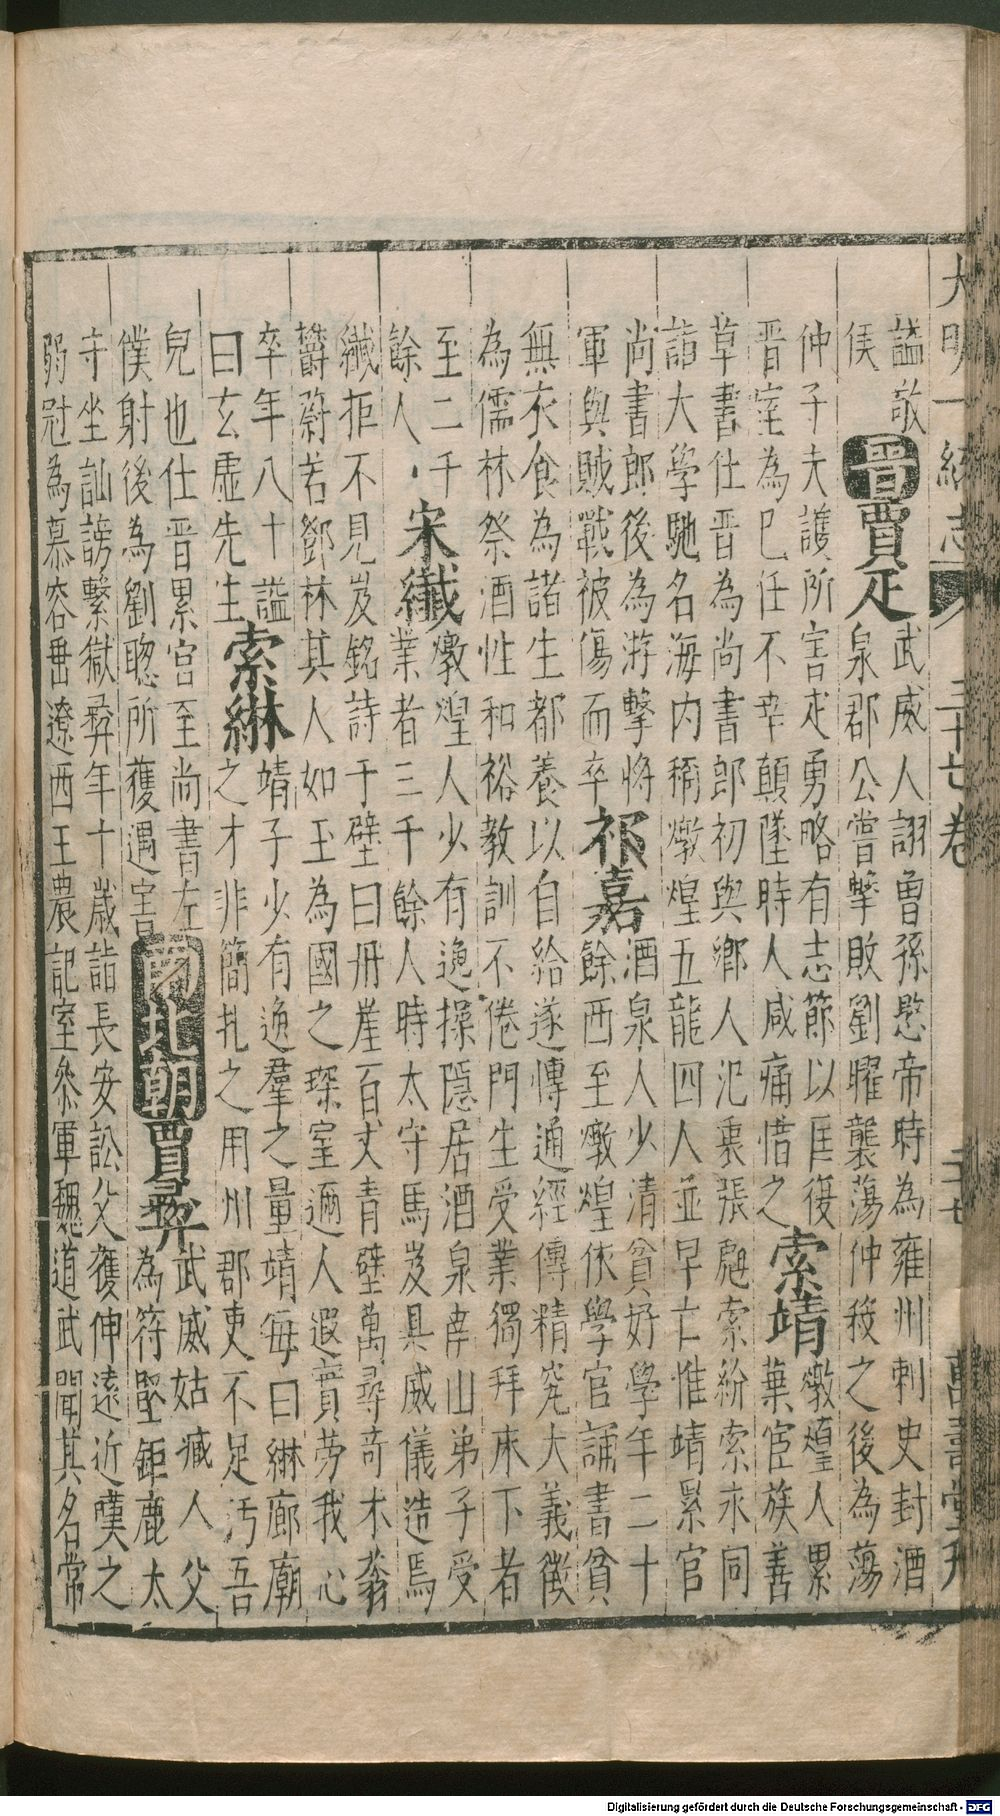 大明一統志 三十七卷 二十七 萬壽堂刊
謚敬
侯
晉 賈疋
武威人詡曾孫愍帝時為雍州刺史封酒
泉郡公嘗擊敗劉曜襲蕩仲殺之後為蕩
仲子夫護所害疋勇略有志節以匡復
晉室為已任不幸顛墜時人咸痛惜之
索靖
燉煌人累
葉宦族善
草書仕晉為尚書郎初與鄉人氾衷張甝索紛索永同
詣大學馳名海内稱燉煌五龍四人並早亡惟靖累官
尚書郎後為游擊將
軍與賊戰被傷而卒
祁嘉
酒泉人少清貧好學年二十
餘西至燉煌依學官誦書貧
無衣食為諸生都養以自給遂博通經傳精究大義徵
為儒林祭酒性和裕教訓不倦門生受業獨拜床下者
至二千
餘人
宋纎
燉煌人少有逸操隱居酒泉南山弟子受
業者三千餘人時太守馬岌具威儀造焉
纎拒不見岌銘詩于壁曰丹崖百丈青壁萬尋竒木蓊
欝蔚若鄧林其人如玉為國之琛室邇人遐實勞我心
卒年八十謚
曰玄虛先生
索綝
靖子少有逸羣之量靖每曰綝廊廟
之才非簡札之用州郡吏不足汚吾
兒也仕晉累官至尚書左
僕射後為劉聦所獲遇害
南北朝 賈彝
武威姑臧人父
為苻堅鉅鹿太
守坐訕謗繫獄彝年十歲詣長安訟父獲伸遠近嘆之
弱冠為慕容垂遼西王農記室叅軍魏道武聞其名常
Digitalisierung gefördert durch die Deutsche Forschungsgemeinschaft - DFG